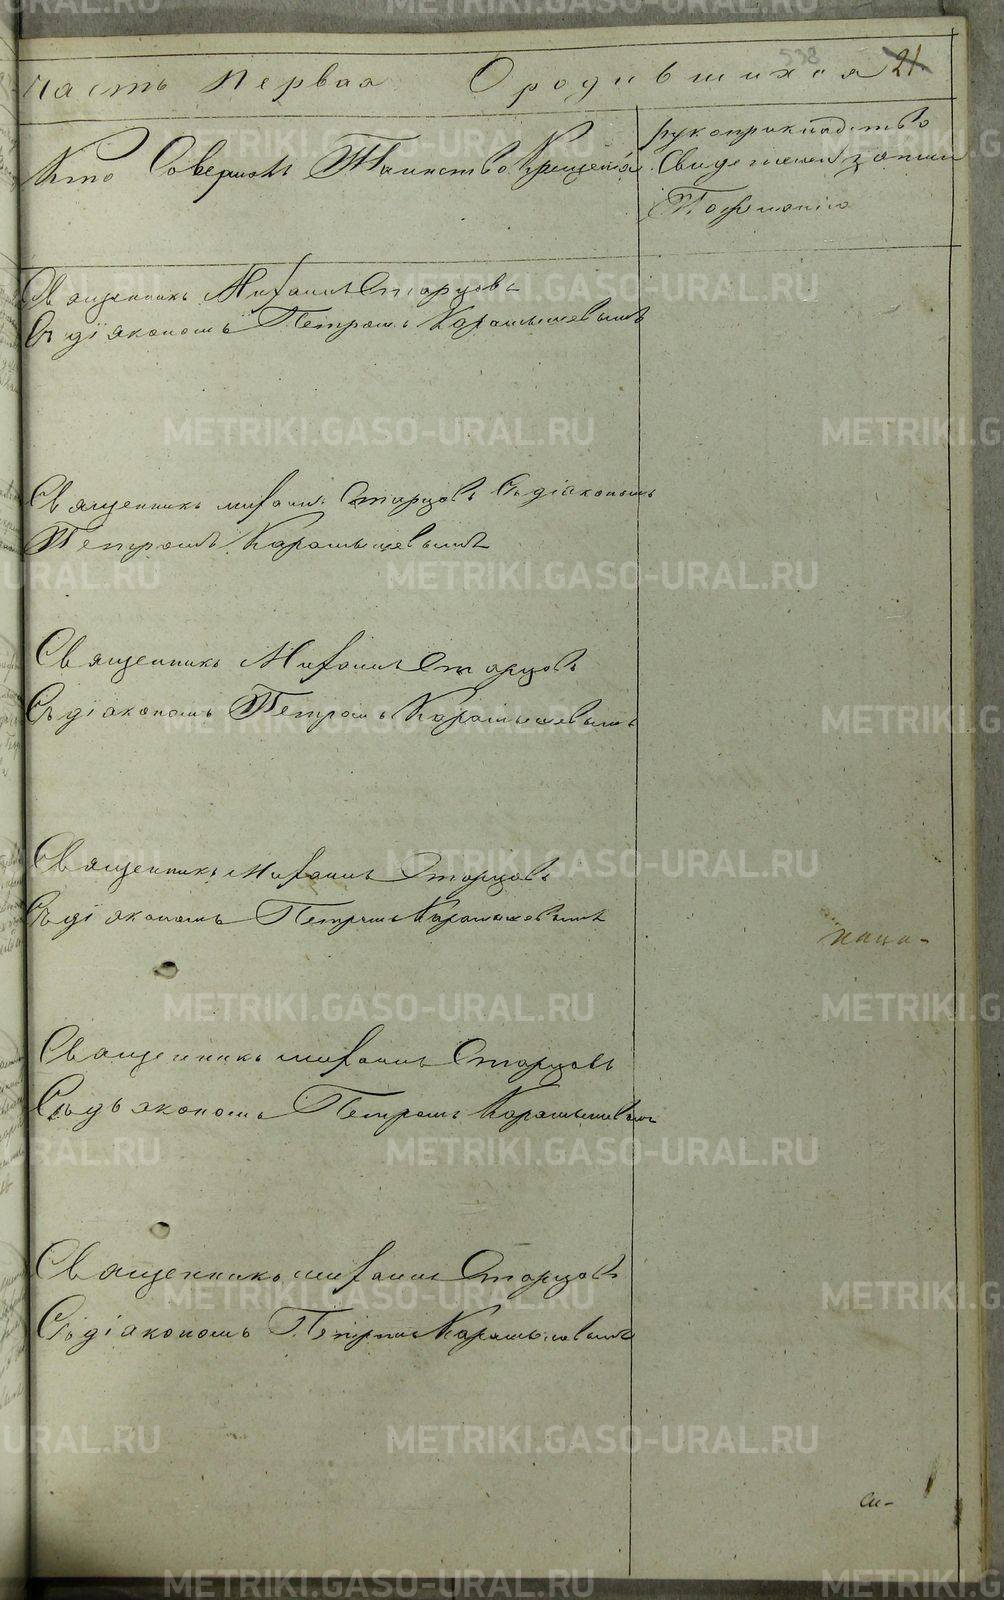 538
Часть Первая О родившихся 21
Кто Совершалъ Таинство Крещенія
рукоприкладство
Свидетелей записи
По желанію
Священникъ Михаилъ Старцовъ
Съ діякономъ Петромъ Карамышевымъ
Священникъ михаилъ Старцовъ Съ діакономъ
Петромъ Карамышевымъ
Священникъ Михаилъ Старцовъ
Съ діакономъ Петромъ Карамышевымъ
Священникъ Михаилъ Старцовъ
Съ діакономъ Петромъ Карамышевымъ
Священникъ михаилъ Старцовъ
Съ дьякономъ Петромъ Карамышевымъ
Священникъ михаилъ Старцовъ
Съ діакономъ Петромъ Карамышевымъ
METRIKI.GASO-URAL.RU